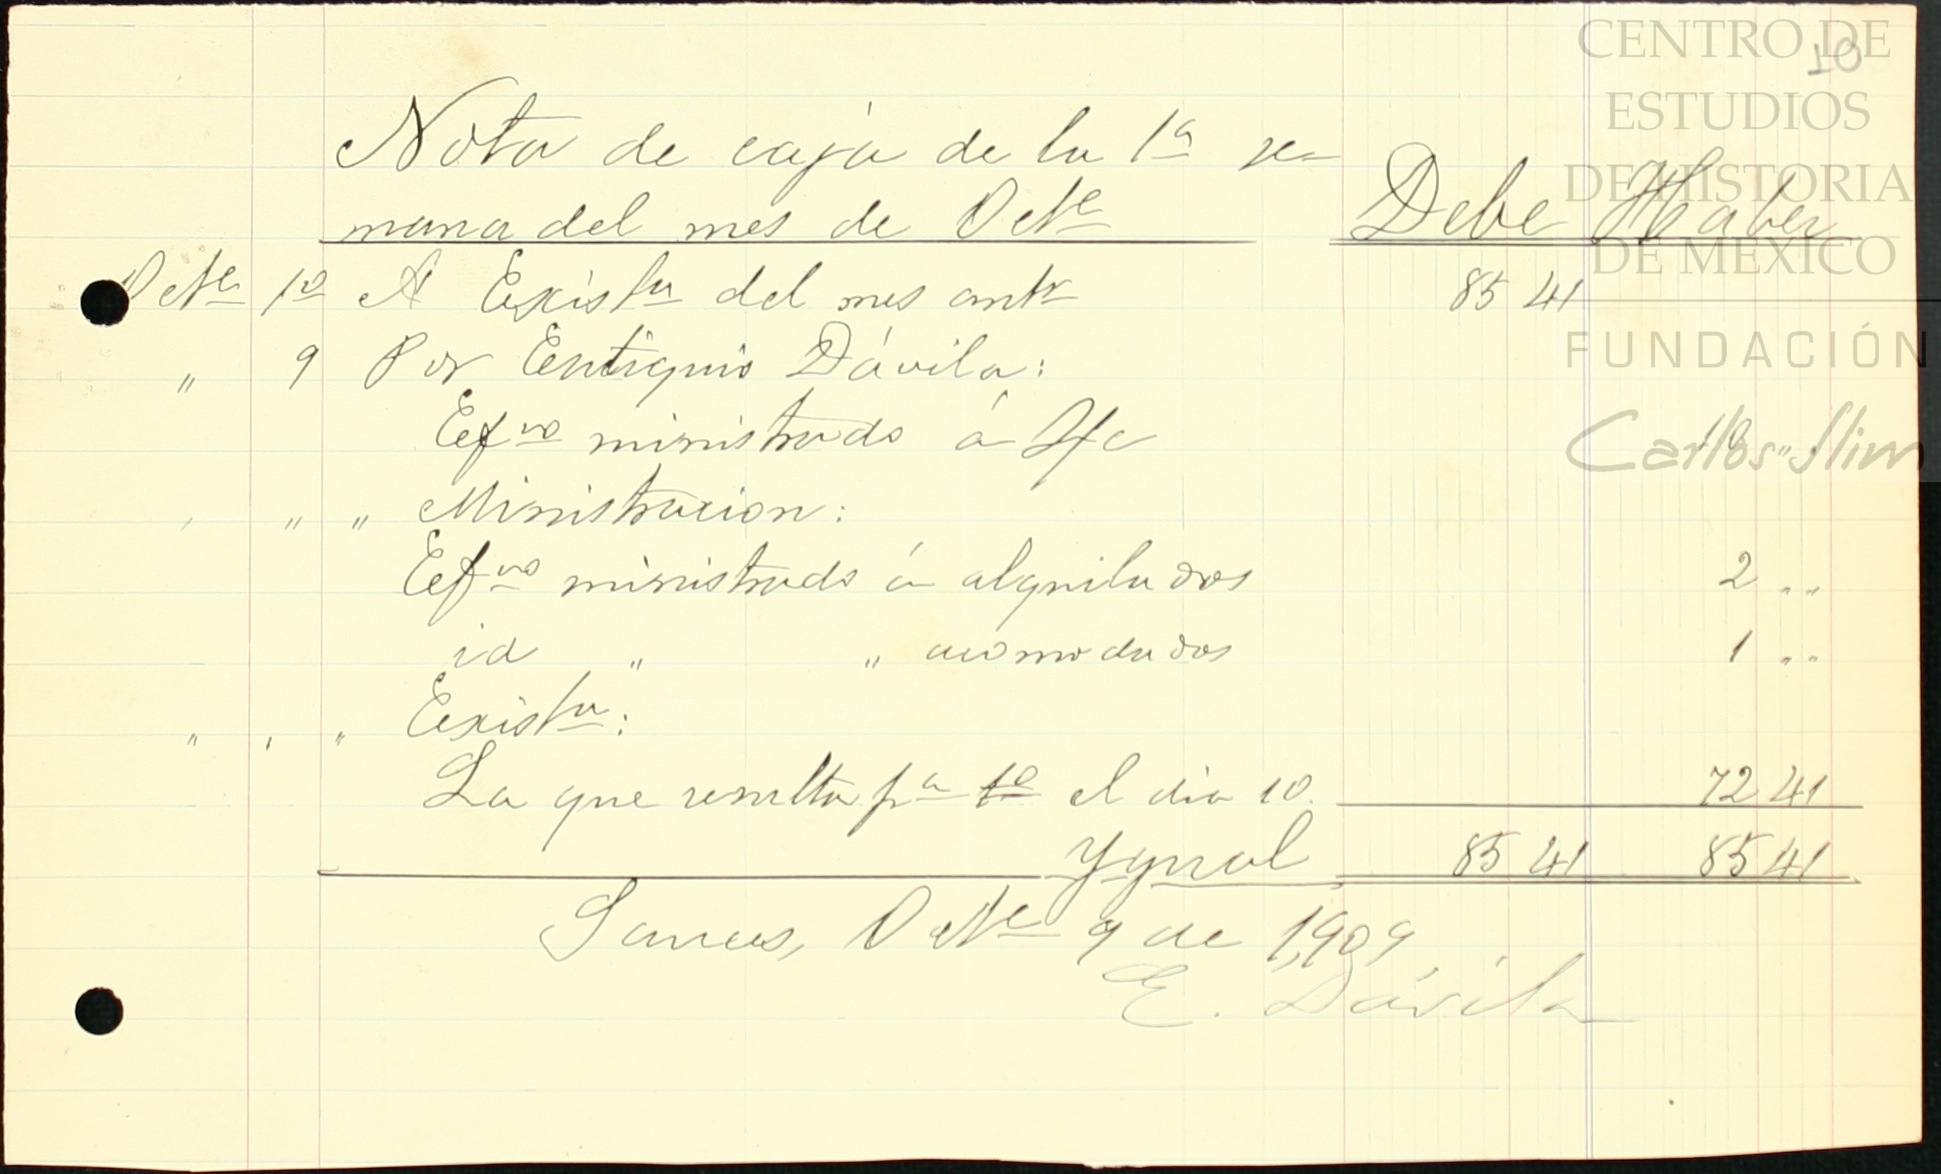 10
CENTRO DE
ESTUDIOS
DE HISTORIA
DE MÉXICO
FUNDACIÓN
Carlos Slim
Nota de caja de la 1ª se-
mana del mes de Octe Debe Haber
Octe 1º A Existª del mes antr 85 41
" 9 Por Eutiquio Dávila:
Efvo ministrado á 10 " "
" " " Ministracion:
Efvo ministrado á alquilados 2 " "
id " " acomodados 1 " "
" " " Existª:
La que resulta pª 1º el dia 10. 72 41
Ygual 85 41 85 41
Sauces, Octe 9 de 1,909,
E. Dávila